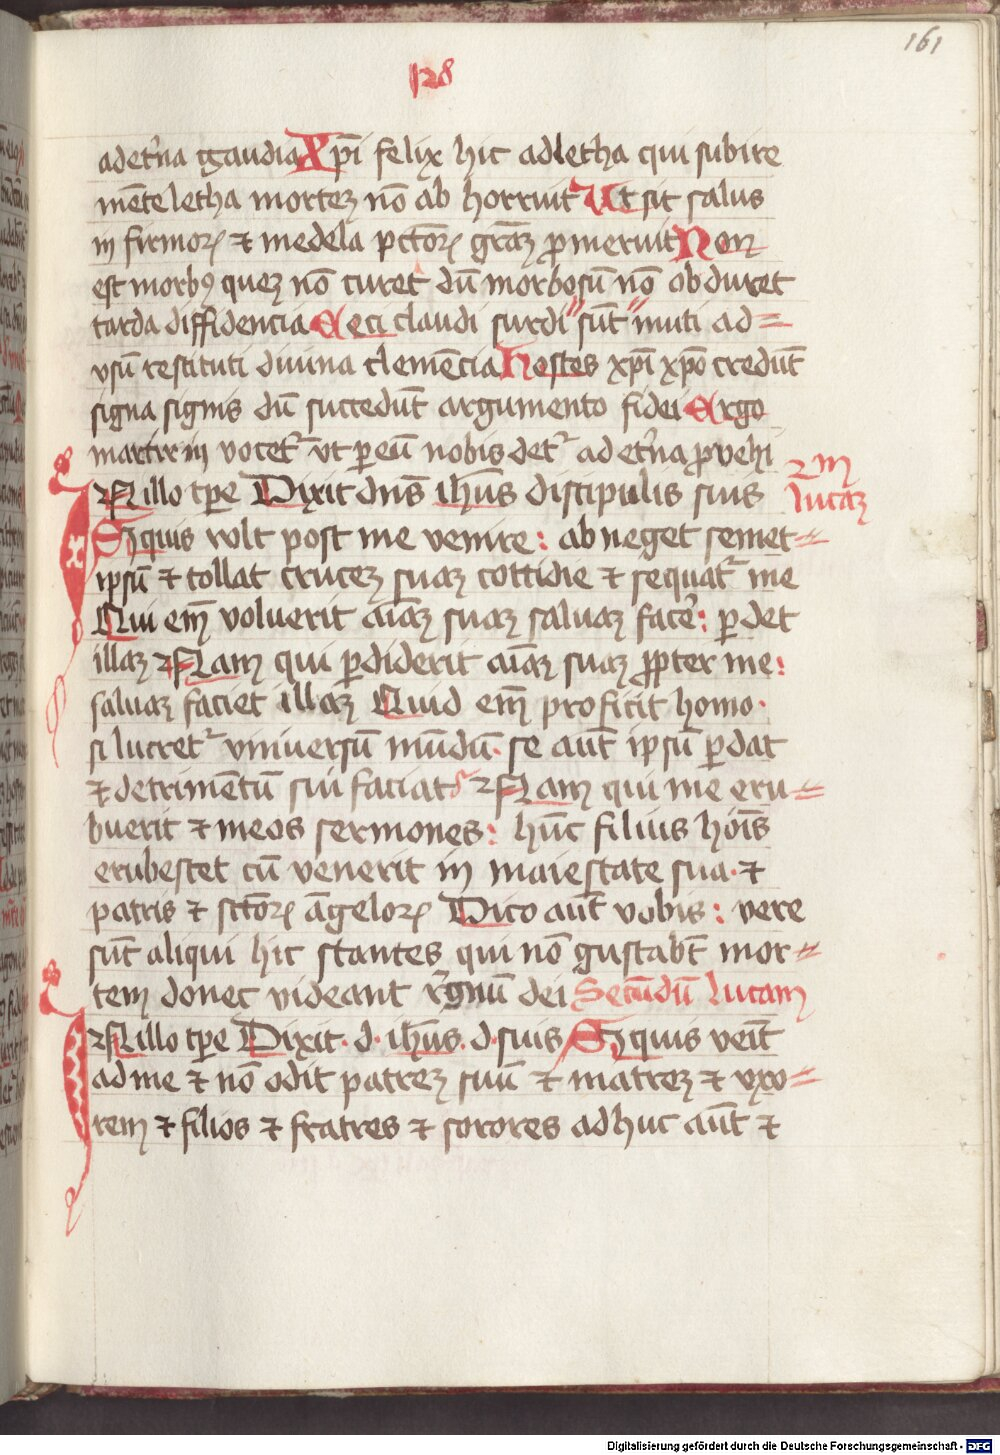 161
128
adet'na tgaudia Xp̄i felix hic adletha qui subire
mēte letha mortēȝ nō ab horruit Ut sit salus
in firmoꝝ ⁊ medela pctōꝝ grāȝ ꝓmeruit Non
est morbꝰ queȝ nō curet dū morbosū nō obduret
tarda diffidencia Ceci claudi surdi sūt muti ad=
vsū restituti diuina clemēcia Hostes xp̄i xp̄o credūt
signa signis dū succedūt argumento fidei Ergo
martir in vocet᷑ vt ꝑ eū nobis det᷑ ad et'na ꝓvehi
2m
lucaȝ
IN illo tp̄e Dixit dn̄s ih̄us discipulis suis
Si quis vult post me venire: ab neget semet=
ipsū ⁊ tollat cruceȝ suaȝ cottidie ⁊ sequat᷑ me
Qui em̄ voluerit aīaȝ suaȝ saluaȝ face': ꝑdet
illaȝ Nam qui ꝑdiderit aīaȝ suaȝ ꝓpter me:
saluaȝ faciet illaȝ Quid em̄ proficit homo·
si lucret᷑ vniuersū mūdū· se aūt ipsū ꝑdat
⁊ detrimētū sui faciat Nam qui me eru=
buerit ⁊ meos sermones: hūc filius hoīs
erubescet cū venerit in maiestate sua· ⁊
patris ⁊ sctōꝝ āgeloꝝ Dico aūt vobis: vere
sūt aliqui hic stantes qui nō gustabt̄ mor=
tem donec videant r̄gnū dei Secūdū lucam
IN illo tp̄e Dixit· d· ih̄us· d· suis Si quis veīt
ad me ⁊ nō odit patreȝ suū ⁊ matreȝ ⁊ vxo=
rem ⁊ filios ⁊ fratres ⁊ sorores adhuc aūt ⁊
Digitalisierung gefördert durch die Deutsche Forschungsgemeinschaft - DFG